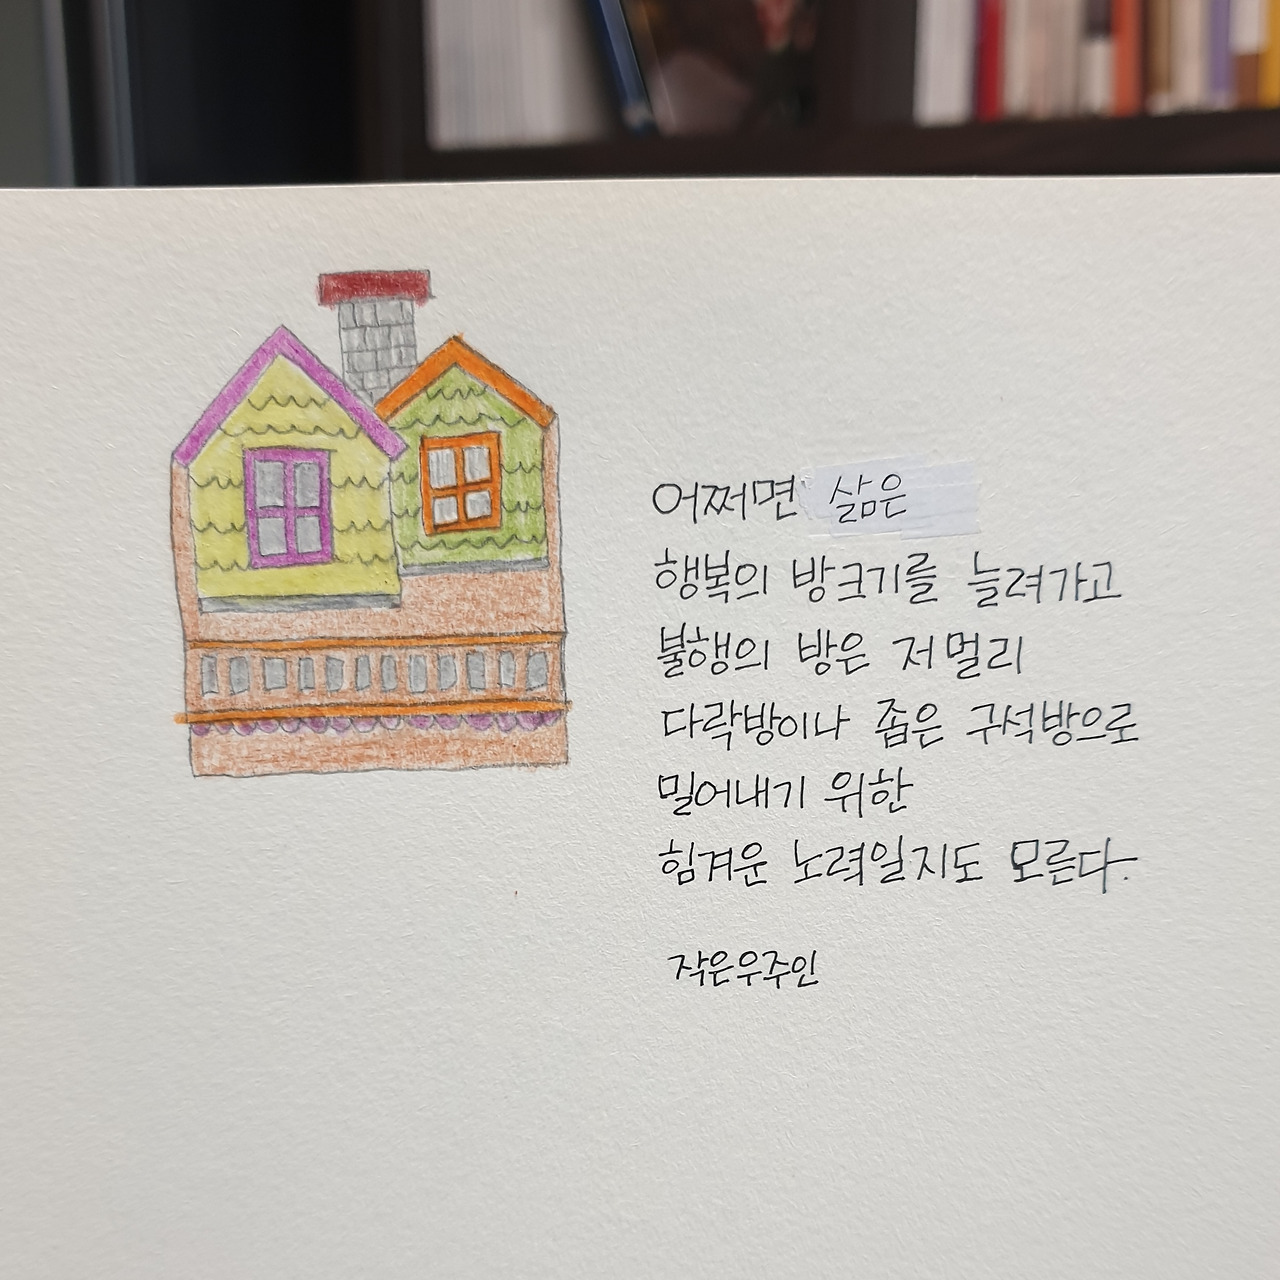 어쩌면 삶은
행복의 방크기를 늘려가고
불행의 방은 저 멀리
다락방이나 좁은 구석방으로
밀어내기 위한
힘겨운 노력일지도 모른다.
작은우주인